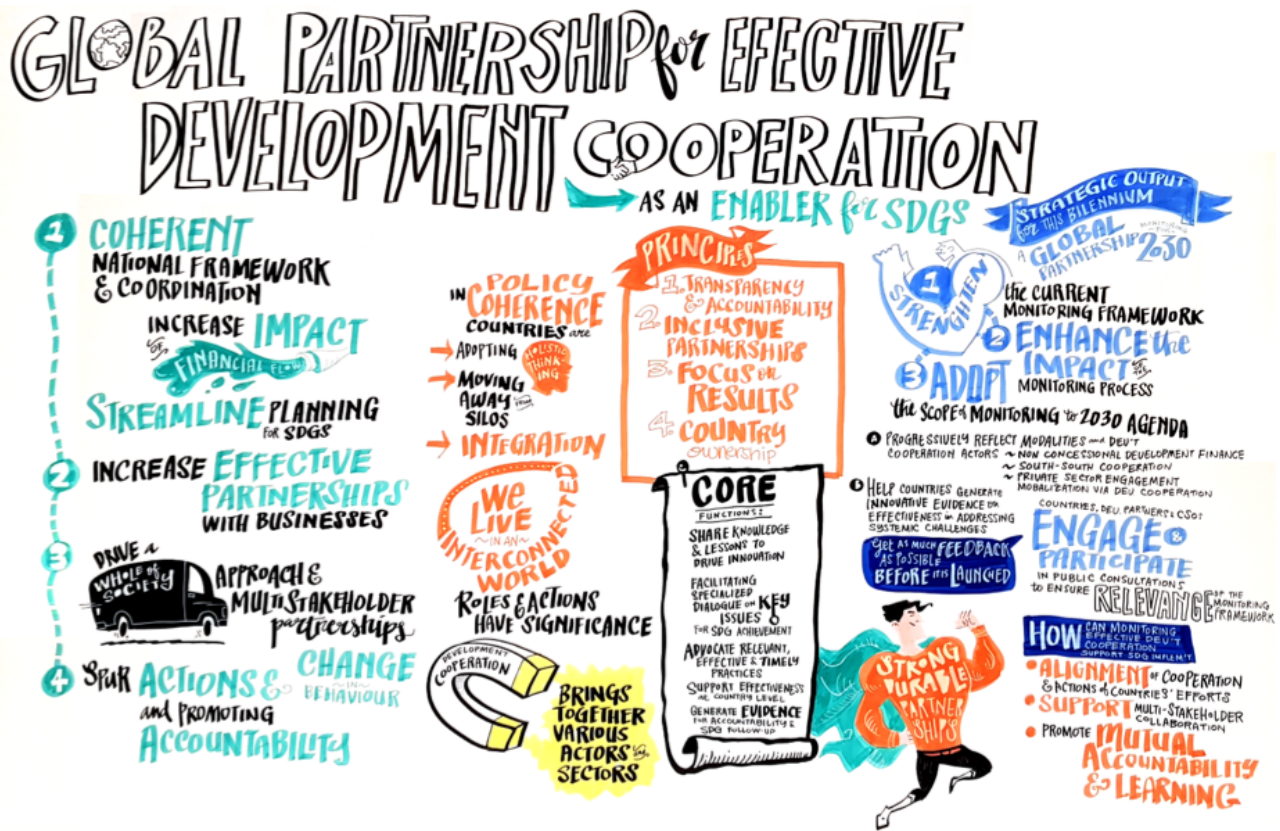 GLOBAL PARTNERSHIP for EFECTIVE
DEVELOPMENT COOPERATION
AS AN ENABLER for SDGS
1 COHERENT
NATIONAL FRAMEWORK
& COORDINATION
INCREASE IMPACT
OF
FINANCIAL FLOW
STREAMLINE PLANNING
FOR SDGS
2 INCREASE EFFECTIVE
PARTNERSHIPS
WITH BUSINESSES
3
DRIVE A
WHOLE of
SOCIETY
APPROACH &
MULTISTAKEHOLDER
partnerships
4 SPUR ACTIONS & CHANGE
IN
BEHAVIOUR
and PROMOTING
ACCOUNTABILITY
IN POLICY
COHERENCE
COUNTRIES are
ADOPTING
HOLISTIC
THINK-
ING
MOVING
AWAY from
SILOS
INTEGRATION
WE
LIVE
~IN AN~
INTERCONNECTED
WORLD
ROLES & ACTIONS
HAVE SIGNIFICANCE
DEVELOPMENT
COOPERATION
BRINGS
TOGETHER
VARIOUS
ACTORS and
SECTORS
PRINCIPLES
1. TRANSPARENCY
& ACCOUNTABILITY
2. INCLUSIVE
PARTNERSHIPS
3. FOCUS on
RESULTS
4. COUNTRY
ownership
CORE
FUNCTIONS:
SHARE KNOWLEDGE
& LESSONS TO
DRIVE INNOVATION
FACILITATING
SPECIALIZED
DIALOGUE on KEY
ISSUES
FOR SDG ACHIEVEMENT
ADVOCATE RELEVANT,
EFFECTIVE & TIMELY
PRACTICES
SUPPORT EFFECTIVENESS
at COUNTRY LEVEL
GENERATE EVIDENCE
FOR ACCOUNTABILITY &
SDG FOLLOW-UP
STRATEGIC OUTPUT
for THIS BILENNIUM
A GLOBAL
PARTNERSHIP
MONITORING
FOR
2030
1
STRENGHTEN
the CURRENT
MONITORING FRAMEWORK
2 ENHANCE the
IMPACT OF THE
MONITORING PROCESS
3 ADOPT
the SCOPE of MONITORING to 2030 AGENDA
A PROGRESSIVELY REFLECT MODALITIES and DEV'T
COOPERATION ACTORS ~ NON CONCESSIONAL DEVELOPMENT FINANCE
~ SOUTH-SOUTH COOPERATION
~ PRIVATE SECTOR ENGAGEMENT
MOBALIZATION VIA DEV COOPERATION
B HELP COUNTRIES GENERATE
INNOVATIVE EVIDENCE on
EFFECTIVENESS in ADDRESSING
SYSTEMIC CHALLENGES
Get AS MUCH FEEDBACK
AS POSSIBLE
BEFORE IT IS LAUNCHED
COUNTRIES, DEV. PARTNERS & CSOs
ENGAGE &
PARTICIPATE
IN PUBLIC CONSULTATIONS
to ENSURE RELEVANCE OF THE
MONITORING
FRAMEWORK
HOW CAN MONITORING
EFFECTIVE DEV'T
COOPERATION
SUPPORT SDG IMPLEM'T
• ALIGNMENT of COOPERATION
& ACTIONS of COUNTRIES' EFFORTS
• SUPPORT MULTI-STAKEHOLDER
COLLABORATION
• PROMOTE MUTUAL
ACCOUNTABILITY
& LEARNING
STRONG
DURABLE
PARTNER
SHIPS